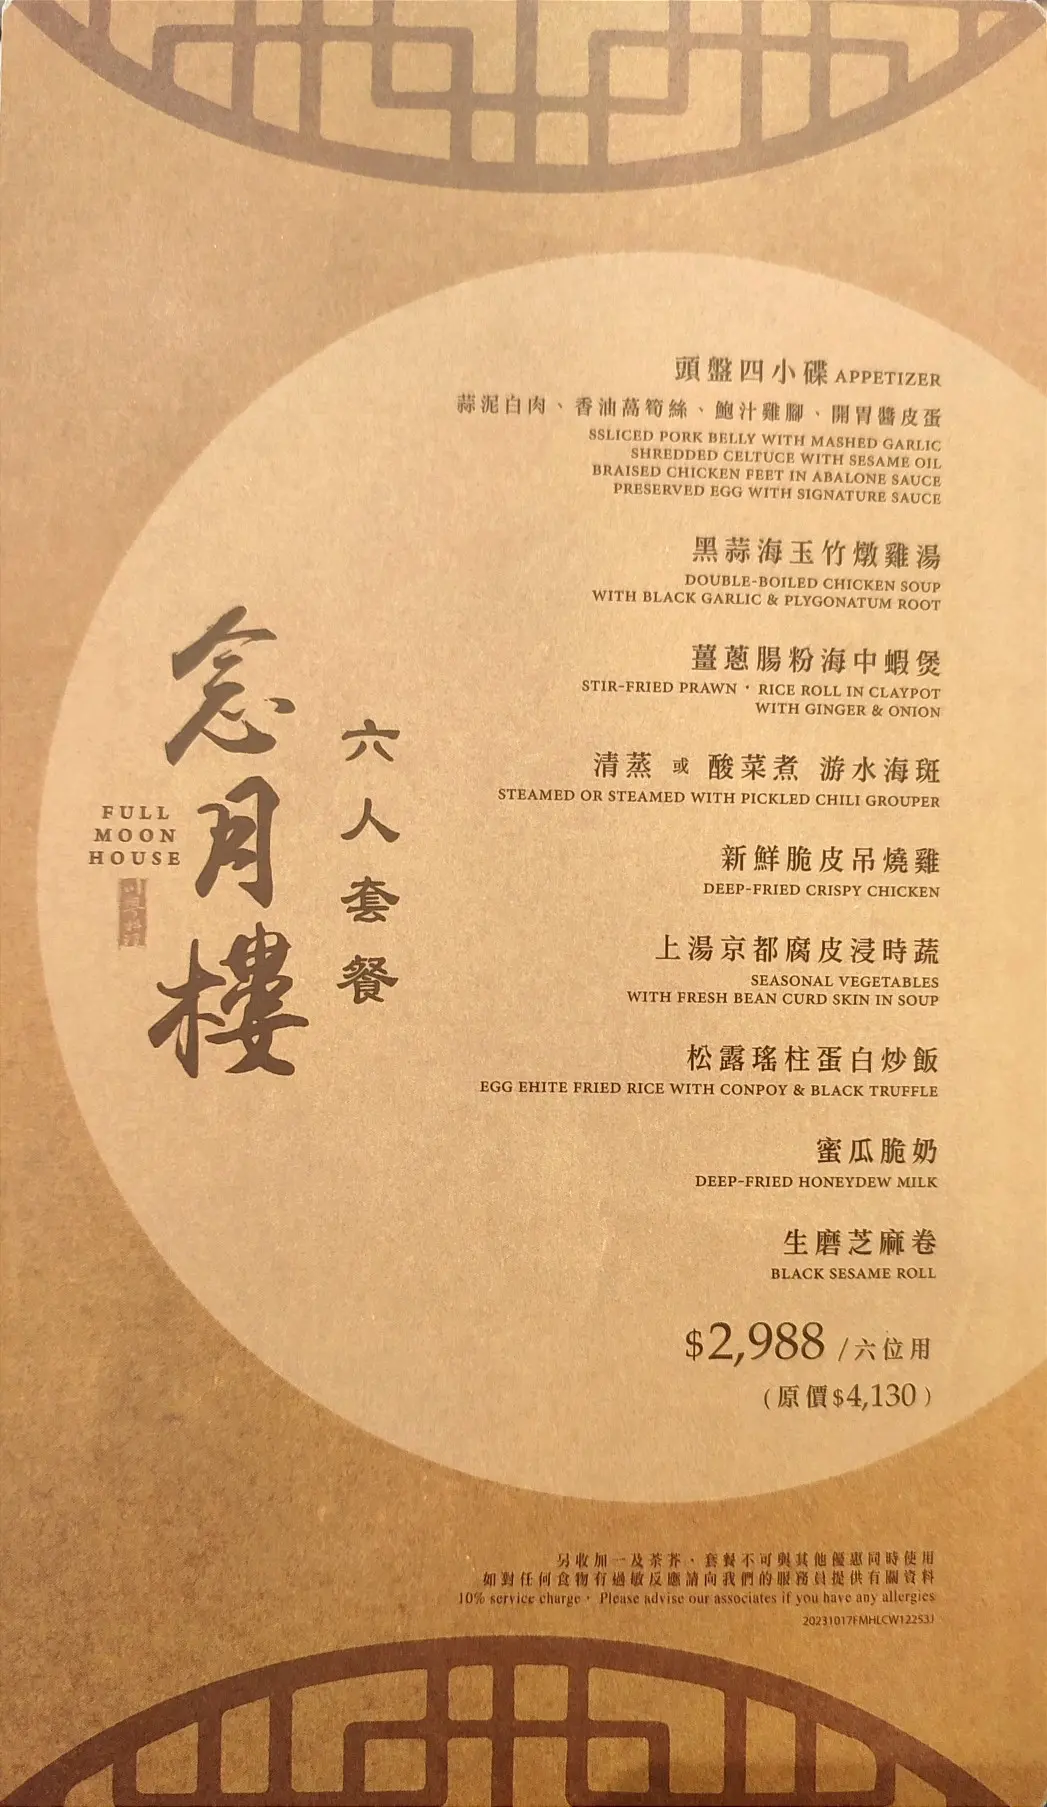 念月樓
FULL
MOON
HOUSE
六人套餐
頭盤四小碟 APPETIZER
蒜泥白肉、香油萵筍絲、鮑汁雞腳、開胃醬皮蛋
SSLICED PORK BELLY WITH MASHED GARLIC
SHREDDED CELTUCE WITH SESAME OIL
BRAISED CHICKEN FEET IN ABALONE SAUCE
PRESERVED EGG WITH SIGNATURE SAUCE
黑蒜海玉竹燉雞湯
DOUBLE-BOILED CHICKEN SOUP
WITH BLACK GARLIC & PLYGONATUM ROOT
薑蔥腸粉海中蝦煲
STIR-FRIED PRAWN，RICE ROLL IN CLAYPOT
WITH GINGER & ONION
清蒸 或 酸菜煮 游水海斑
STEAMED OR STEAMED WITH PICKLED CHILI GROUPER
新鮮脆皮吊燒雞
DEEP-FRIED CRISPY CHICKEN
上湯京都腐皮浸時蔬
SEASONAL VEGETABLES
WITH FRESH BEAN CURD SKIN IN SOUP
松露瑤柱蛋白炒飯
EGG EHITE FRIED RICE WITH CONPOY & BLACK TRUFFLE
蜜瓜脆奶
DEEP-FRIED HONEYDEW MILK
生磨芝麻卷
BLACK SESAME ROLL
$2,988 /六位用
(原價$4,130)
另收加一及茶芥，套餐不可與其他優惠同時使用
如對任何食物有過敏反應請向我們的服務員提供有關資料
10% service charge， Please advise our associates if you have any allergies
20231017FMHLCW12253J